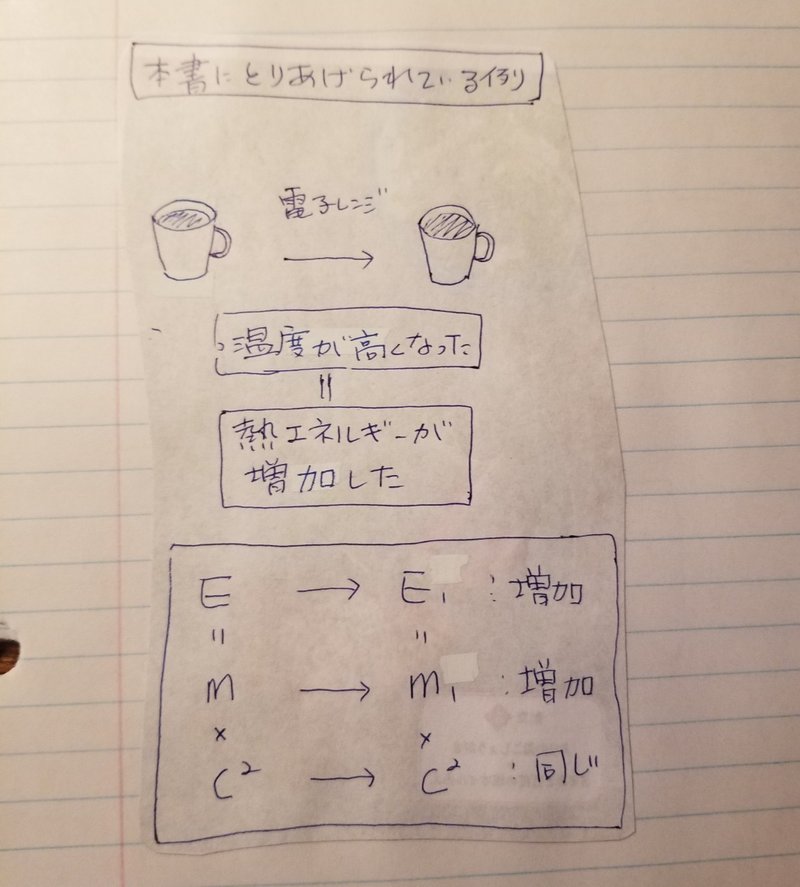 本書にとりあげられている例
電子レンジ
→
温度が高くなった
=
熱エネルギーが
増加した
E → E₁ : 増加
= =
m → m₁ : 増加
× ×
C² → C² : 同じ